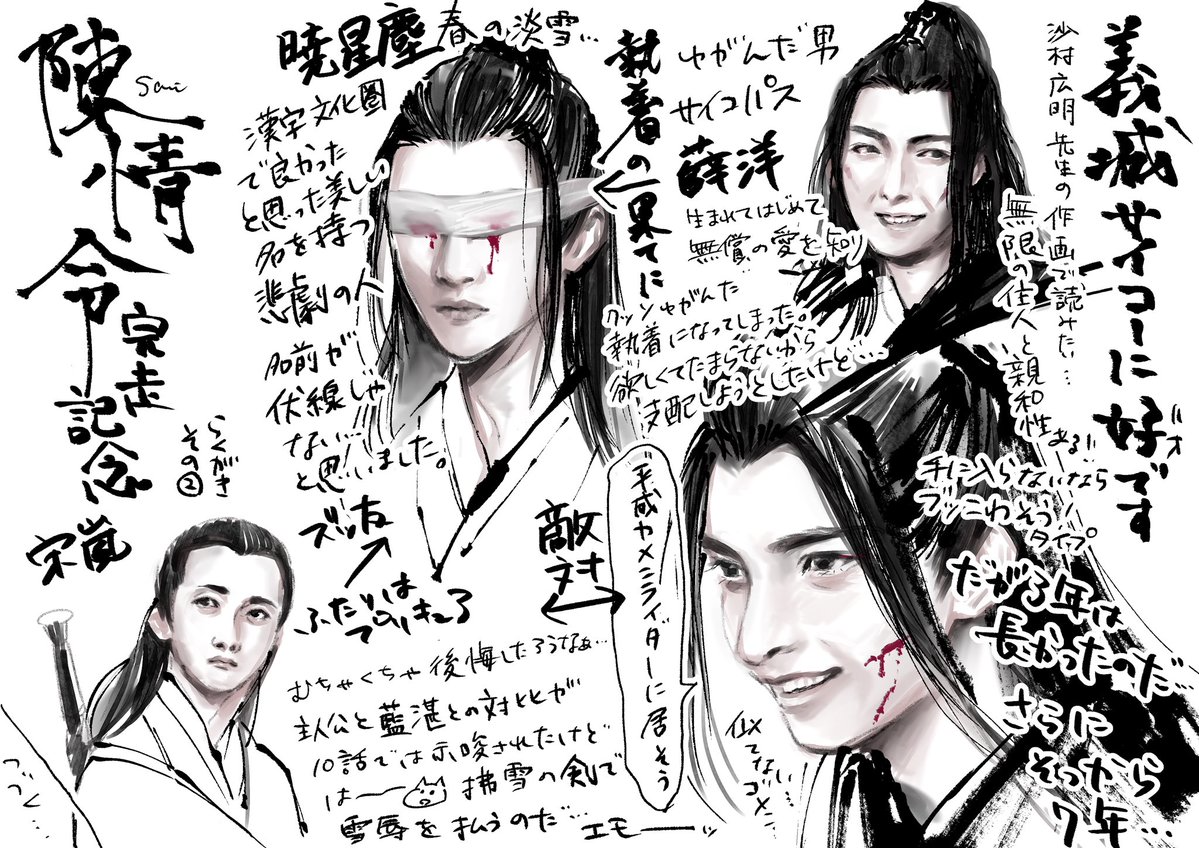 陳情令
完走
記念
Sai
らくがき
その②
宋嵐
暁星塵 春の淡雪…
漢字文化圏
で良かった
と思った美しい
名を持つ
悲劇の人
名前が
伏線じゃ
ない!
と思いました。
ズッ友
ふたりは
敵対
むちゃくちゃ後悔したろうなぁ…
主人公と藍湛との対比が
10話では示唆されたけど
はーー 拂雪の剣で
雪辱を払うのだ… エモーーッ
執着の果てに
ゆがんだ男
サイコパス
薛洋
生まれてはじめて
無償の愛を知り
クッソゆがんだ
執着になってしまった。
欲しくてたまらないから
支配しようとしたけど…
平成カメンライダーに居そう
似てない…
ゴメン
義城サイコーに好です
沙村広明先生の作画で読みたい…
無限の住人と親和性ある!!
手に入らないなら
ブッこわそう
タイプ
だが3年は
長かったのだ…
さらに
そっから
7年…
つづく